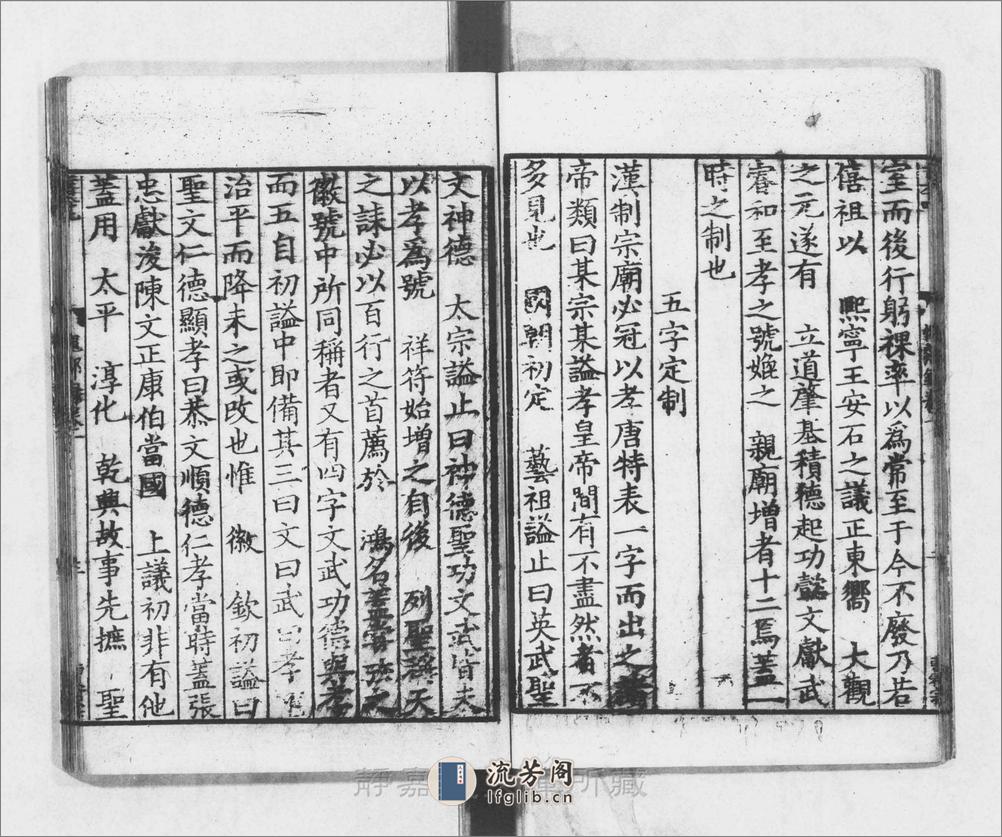 室而後行躬祼率以為常至于今不廢乃若
僖祖以 熙寧王安石之議正東嚮 大觀
之元遂有 立道肇基積德起功懿文獻武
睿和至孝之號焕之 親廟增者十二焉蓋一
時之制也
五字定制
漢制宗廟必冠以孝唐特表一字而出之
帝類曰某宗某謚孝皇帝間有不盡然者不
多見也 國朝初定 藝祖謚止曰英武聖
文神德 太宗謚止曰神德聖功文武皆未
以孝為號 祥符始增之自後 列聖稱天
之誄必以百行之首薦於 鴻名
徽號中所同稱者又有四字文武功德與孝
而五自初謚中即備其三曰文曰武曰孝
治平而降未之或改也惟 徽 欽初謚曰
聖文仁德顯孝曰恭文順德仁孝當時蓋張
忠獻浚陳文正康伯當國 上議初非有他
蓋用 太平 淳化 乾興故事先摭 聖
静嘉 所藏
流芳阁
lfglib.cn